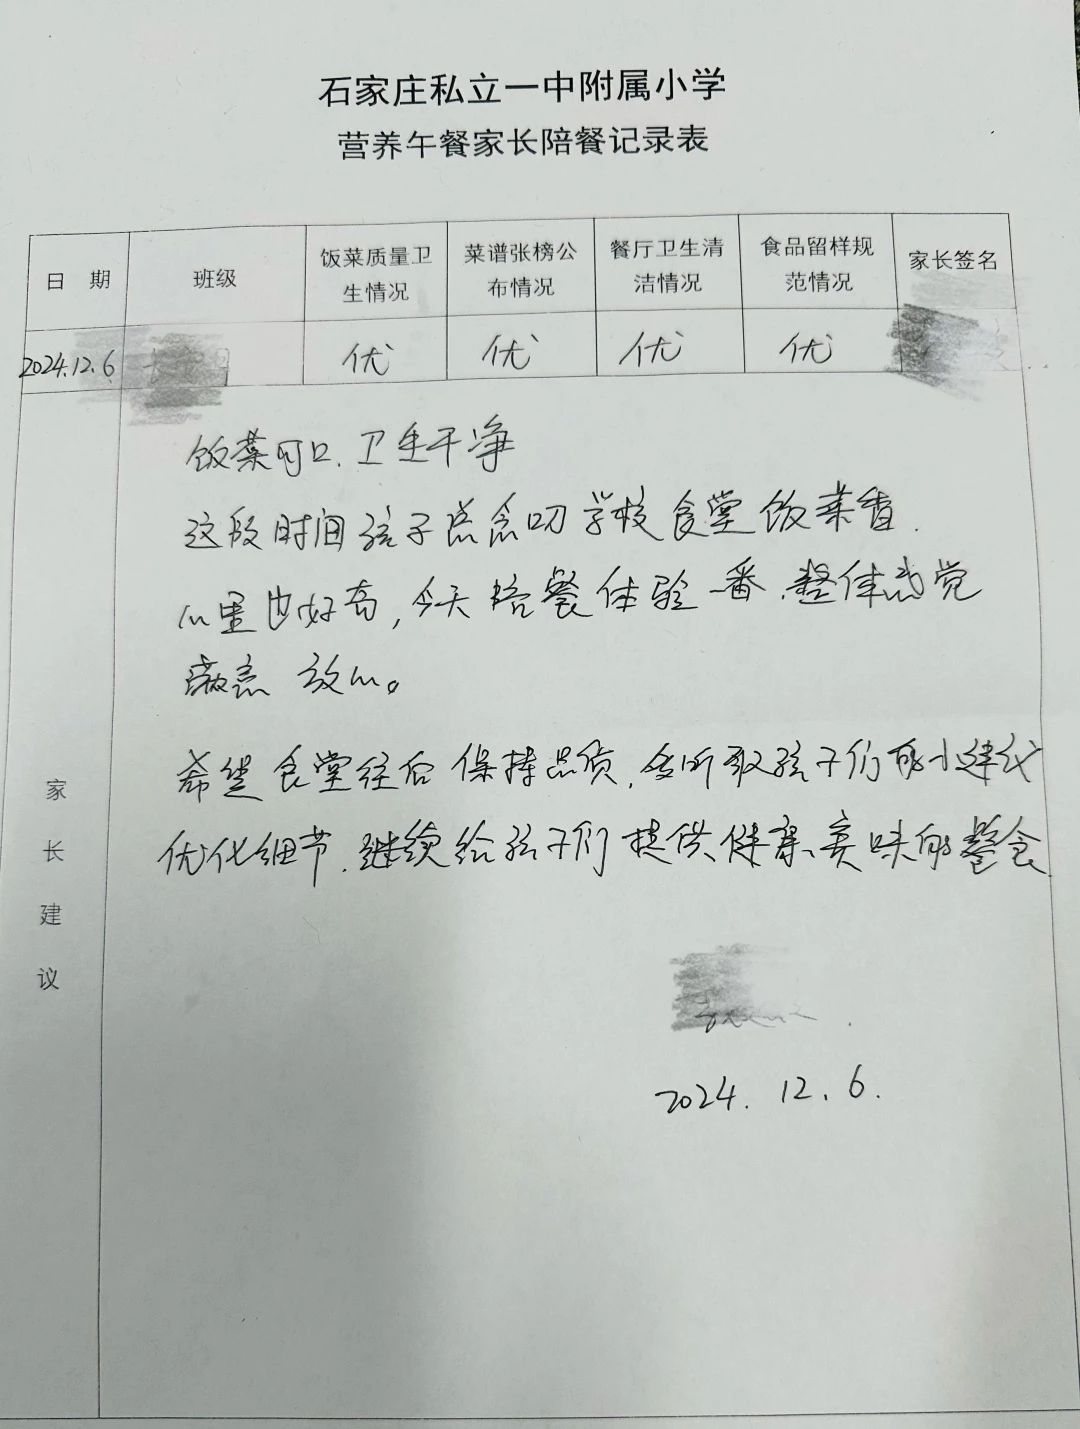 石家庄私立一中附属小学
营养午餐家长陪餐记录表
日 期 班级 饭菜质量卫生情况 菜谱张榜公布情况 餐厅卫生清洁情况 食品留样规范情况 家长签名
2024.12.6 优 优 优 优
家长建议
饭菜可口.卫生干净
这段时间孩子总念叨学校食堂饭菜香.
心里也好奇,今天陪餐体验一番.整体感觉
满意 放心。
希望食堂往后保持品质,多听取孩子们的小建议
优化细节.继续给孩子们提供健康、美味的餐食
2024.12.6.